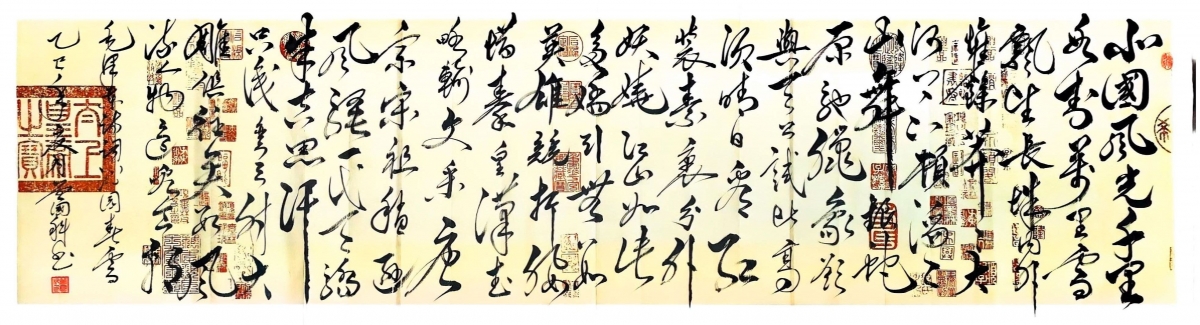 北國風光千里
冰封萬里雪
飄望長城內外
惟餘莽莽大
河上下頓滔滔
山舞銀蛇
原馳蠟象欲
與天公試比高
須晴日看紅
裝素裹分外
妖嬈江山如此
多嬌引無數
英雄競折腰
惜秦皇漢武
略輸文采唐
宗宋祖稍遜
風騷一代天驕
成吉思汗
只識彎弓射大
雕俱往矣數風
流人物還看今朝
毛澤東沁園春雪
乙巳年書